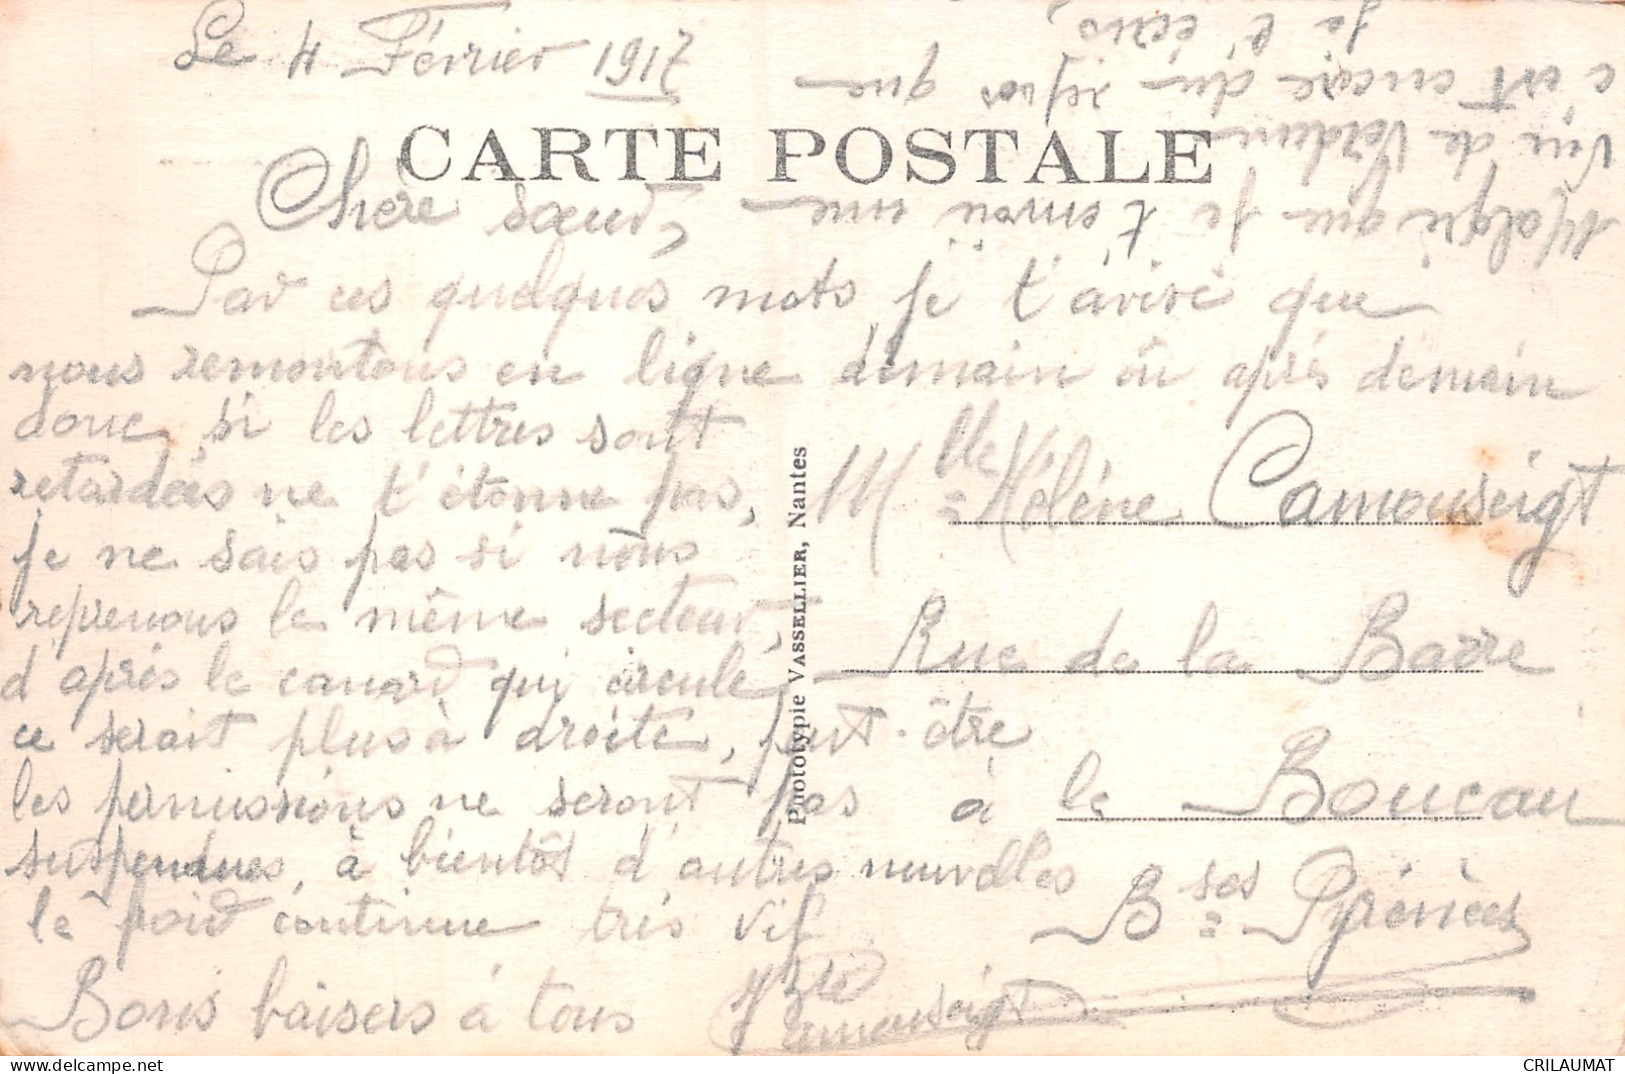 Le 4 Février 1917
CARTE POSTALE
Chère sœur,
Par ces quelques mots je t'avise que
nous remontons en ligne demain ou après demain
donc si les lettres sont
retardées ne t'étonne pas,
je ne sais pas si nous
reprenons le même secteur,
d'après le canard qui circule
ce serait plus à droite, peut-être
les permissions ne seront pas
suspendues, à bientôt d'autres nouvelles
le froid continue très vif
Bons baisers à tous
Camouseigt
Malgré que je t'envoie une
vue de Verdun
c'est encore du repos que
je t'écris,
Phototypie VASSELLIER, Nantes
Mlle Hélène Camouseigt
Rue de la Barre
à le Boucau
Bses Pyrénées
CRILAUMAT
delcampe.net